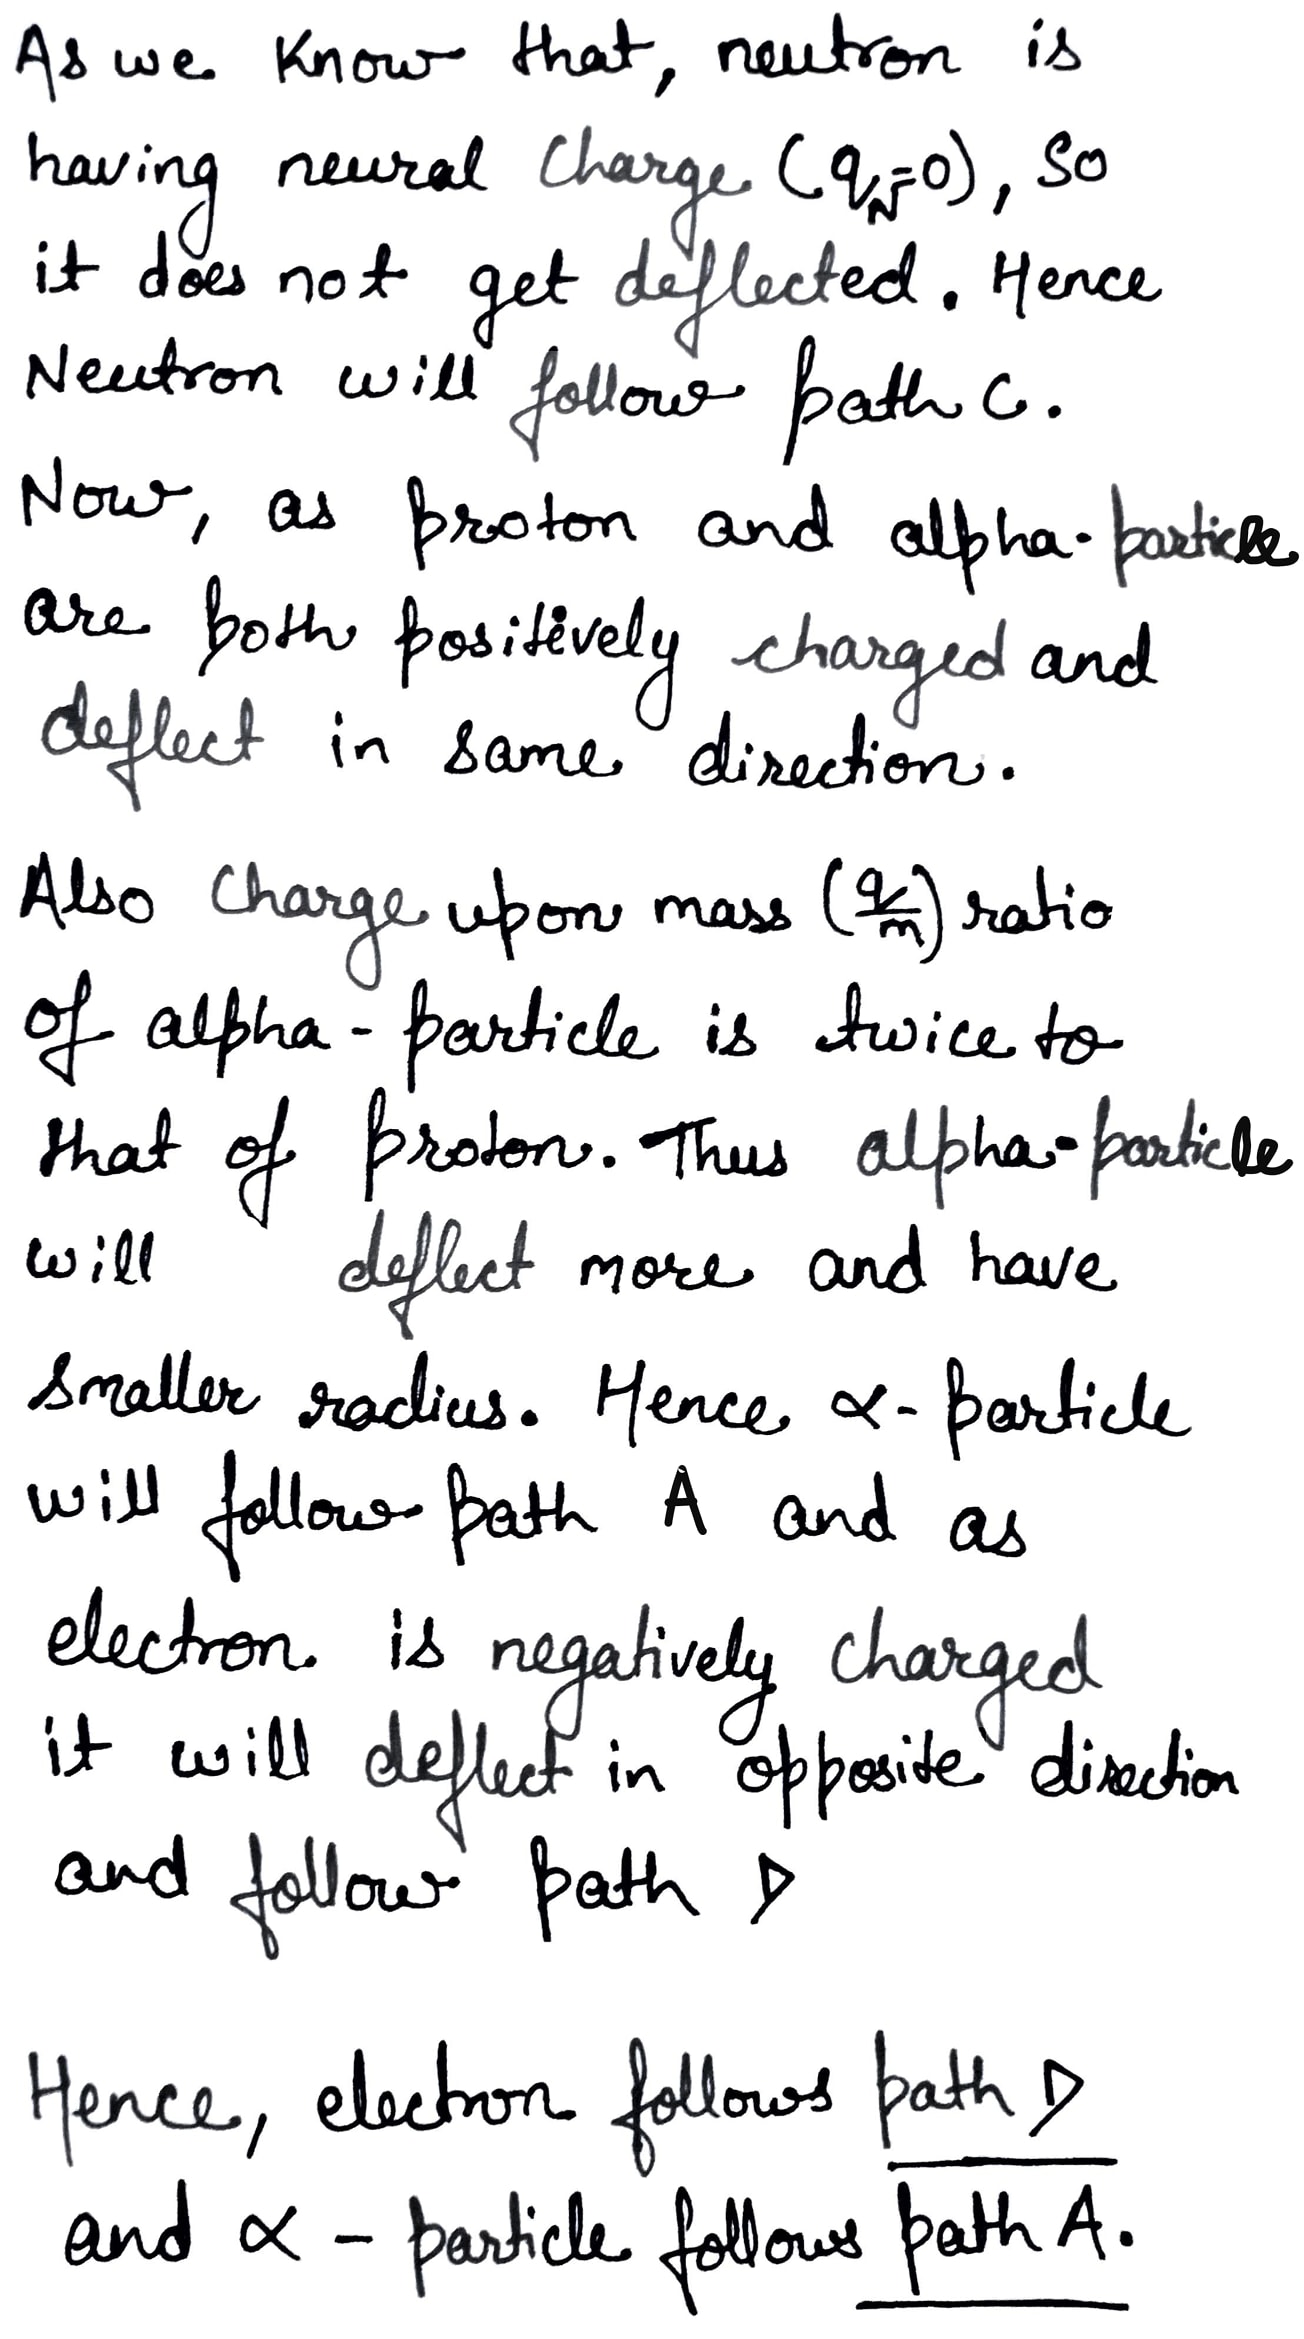 As we know that, neutron is
having neural charge (q_N=0), so
it does not get deflected. Hence
Neutron will follow path C.
Now, as proton and alpha-particle
are both positively charged and
deflect in same direction.
Also charge upon mass (q/m) ratio
of alpha-particle is twice to
that of proton. Thus alpha-particle
will deflect more and have
smaller radius. Hence α-particle
will follow path A and as
electron is negatively charged
it will deflect in opposite direction
and follow path D
Hence, electron follows path D
and α-particle follows path A.